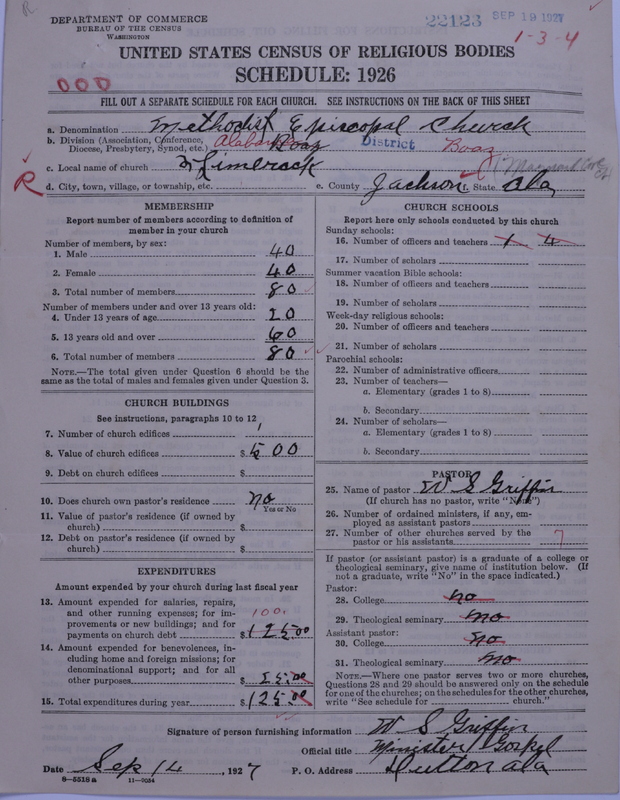 DEPARTMENT OF COMMERCE
BUREAU OF THE CENSUS
WASHINGTON
22123 SEP 19 1927
1-3-4
UNITED STATES CENSUS OF RELIGIOUS BODIES
SCHEDULE: 1926
000
FILL OUT A SEPARATE SCHEDULE FOR EACH CHURCH. SEE INSTRUCTIONS ON THE BACK OF THIS SHEET
a. Denomination Methodist Episcopal Church
b. Division (Association, Conference, Diocese, Presbytery, Synod, etc.) Alabama Boaz District Boaz
c. Local name of church Limerock
R d. City, town, village, or township, etc. e. County Jackson f. State Ala
MEMBERSHIP
Report number of members according to definition of
member in your church
Number of members, by sex:
1. Male 40
2. Female 40
3. Total number of members 80
Number of members under and over 13 years old:
4. Under 13 years of age 20
5. 13 years old and over 60
6. Total number of members 80
NOTE.—The total given under Question 6 should be the
same as the total of males and females given under Question 3.
CHURCH BUILDINGS
See instructions, paragraphs 10 to 12
7. Number of church edifices 1
8. Value of church edifices $ 500
9. Debt on church edifices $
10. Does church own pastor's residence no
Yes or No
11. Value of pastor's residence (if owned by
church) $
12. Debt on pastor's residence (if owned by
church) $
EXPENDITURES
Amount expended by your church during last fiscal year
13. Amount expended for salaries, repairs,
and other running expenses; for im-
provements or new buildings; and for
payments on church debt 100. $ 125.00
14. Amount expended for benevolences, in-
cluding home and foreign missions; for
denominational support; and for all
other purposes $
15. Total expenditures during year $ 125.00
CHURCH SCHOOLS
Report here only schools conducted by this church
Sunday schools:
16. Number of officers and teachers 1 4
17. Number of scholars
Summer vacation Bible schools:
18. Number of officers and teachers
19. Number of scholars
Week-day religious schools:
20. Number of officers and teachers
21. Number of scholars
Parochial schools:
22. Number of administrative officers
23. Number of teachers—
a. Elementary (grades 1 to 8)
b. Secondary
24. Number of scholars—
a. Elementary (grades 1 to 8)
b. Secondary
PASTOR
25. Name of pastor W S Griffin
(If church has no pastor, write "None")
26. Number of ordained ministers, if any, em-
ployed as assistant pastors
27. Number of other churches served by the
pastor or his assistants 7
If pastor (or assistant pastor) is a graduate of a college or
theological seminary, give name of institution below. (If
not a graduate, write "No" in the space indicated.)
Pastor:
28. College no
29. Theological seminary no
Assistant pastor:
30. College no
31. Theological seminary no
NOTE.—Where one pastor serves two or more churches,
Questions 28 and 29 should be answered only on the schedule
for one of the churches; on the schedules for the other churches,
write "See schedule for church."
Signature of person furnishing information W S Griffin
Official title Minister Gospel
Date Sep 14, 1927 P. O. Address Dutton Ala
8-5518a 11-9034